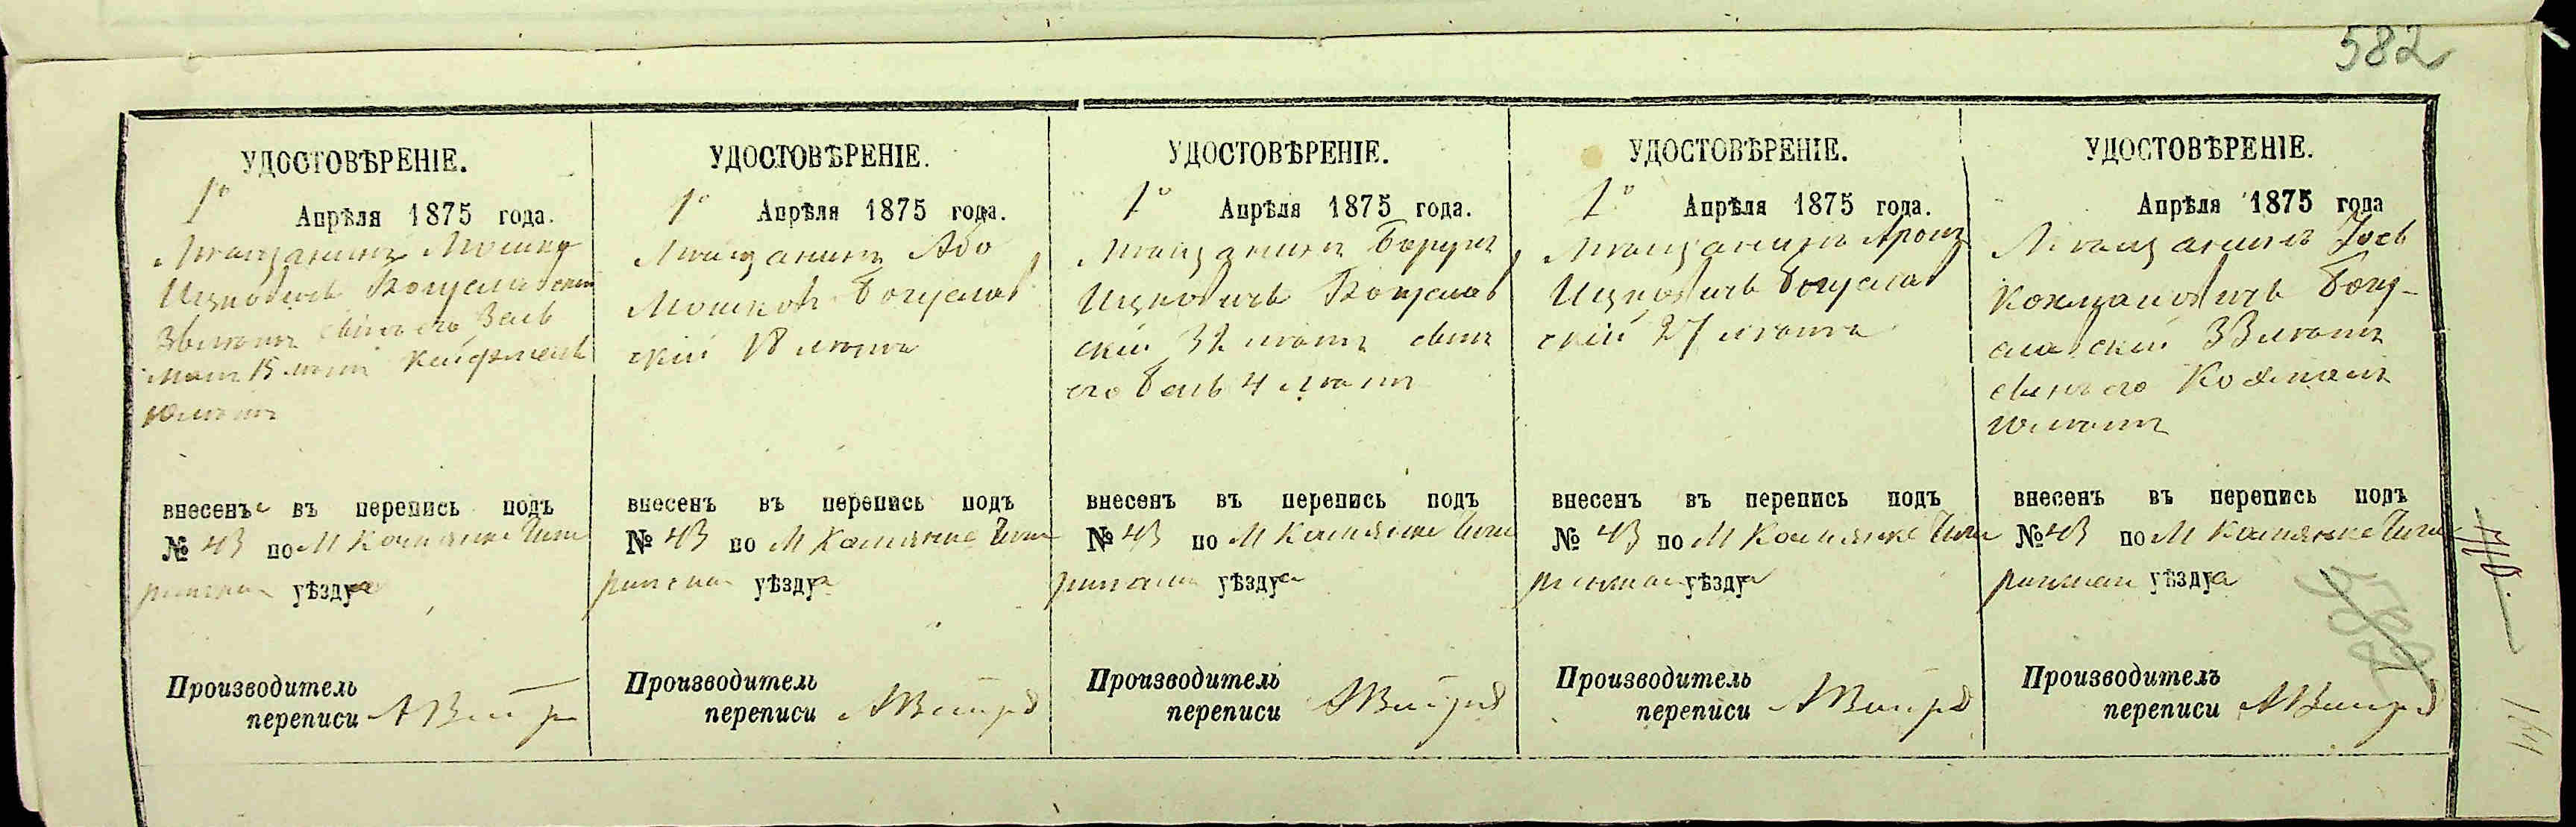 582
УДОСТОВѢРЕНІЕ.
1го Апрѣля 1875 года.
Мѣщанинъ Мошко
Ицковичъ Богуславскій
лѣтъ сынъ его
лѣтъ 15 лѣтъ
лѣтъ
внесенъ въ перепись подъ
№ 43 по М Каменке Чиги
ринскаго уѣзда
Производитель
переписи
УДОСТОВѢРЕНІЕ.
1го Апрѣля 1875 года.
Мѣщанинъ Або
Мошков Богуслав
скій 18 лѣтъ
внесенъ въ перепись подъ
№ 43 по М Каменке Чиги
ринскаго уѣзда
Производитель
переписи
УДОСТОВѢРЕНІЕ.
1го Апрѣля 1875 года.
Мѣщанинъ Берунъ
Ицковичъ Богуслав
скій 32 лѣтъ сынъ
его 4 лѣтъ
внесенъ въ перепись подъ
№ 43 по М Каменке Чиги
ринскаго уѣзда
Производитель
переписи
УДОСТОВѢРЕНІЕ.
1го Апрѣля 1875 года.
Мѣщанинъ Аронъ
Ицковичъ Богуслав
скій 27 лѣтъ
внесенъ въ перепись подъ
№ 43 по М Каменке Чиги
ринскаго уѣзда
Производитель
переписи
УДОСТОВѢРЕНІЕ.
Апрѣля 1875 года
Мѣщанинъ Іось
Богу-
славскій 33 лѣтъ
сынъ его
лѣтъ
внесенъ въ перепись подъ
№ 43 по М Каменке Чиги
ринскаго уѣзда
Производитель
переписи